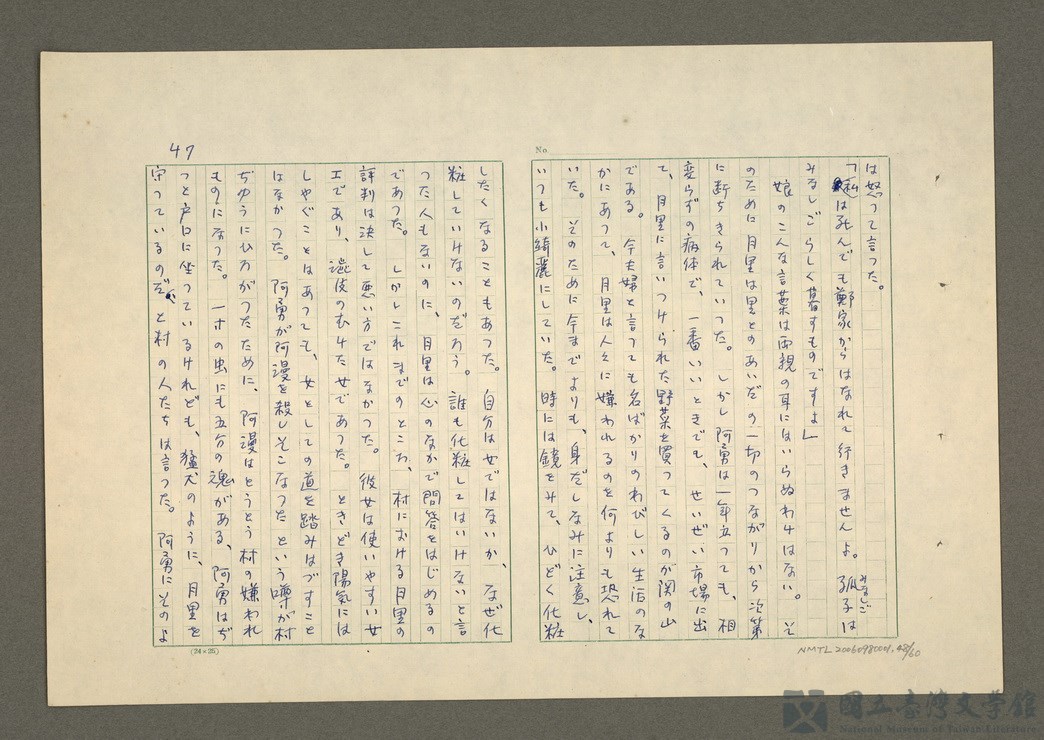 は怒つて言つた。
「私は死んでも鄭家からはなれて行きませんよ。孤子は
みなしご
みなしごらしく暮すものですよ」
娘のこんな言葉は両親の耳にはいらぬわけはない。そ
のために月里は里とのあいだの一切のつながりから次第
に断ちきられていつた。しかし阿勇は一年立つても、相
変らずの病体で、一番いいときでも、せいぜい市場に出
て、月里に言いつけられた野菜を買つてくるのが関の山
である。今夫婦と言つても名ばかりのわびしい生活のな
かにあつて、月里は人々に嫌われるのを何よりも恐れて
いた。そのために今までよりも、身だしなみに注意し、
いつも小綺麗にしていた。時には鏡をみて、ひどく化粧
したくなることもあつた。自分は女ではないか、なぜ化
粧していけないのだろう。誰も化粧してはいけないと言
つた人もないのに、月里は心のなかで問答をはじめるの
であつた。しかしこれまでのところ、村における月里の
評判は決して悪い方ではなかつた。彼女は使いやすい女
工であり、澁皮のむけた女であつた。ときどき陽気には
しやぐことはあつても、女としての道を踏みはづすこと
はなかつた。阿勇が阿漫を殺しそこなつたという噂が村
ぢゆうにひろがつたために、阿漫はとうとう村の嫌われ
ものになつた。一寸の虫にも五分の魂がある、阿勇はぢ
つと戸口に坐つているけれども、猛犬のように、月里を
守つているのだ、と村の人たちは言つた。阿勇にそのよ
47
No
(24×25)
NMTL 20060980001.48/60
國立臺灣文學館
National Museum of Taiwan Literature